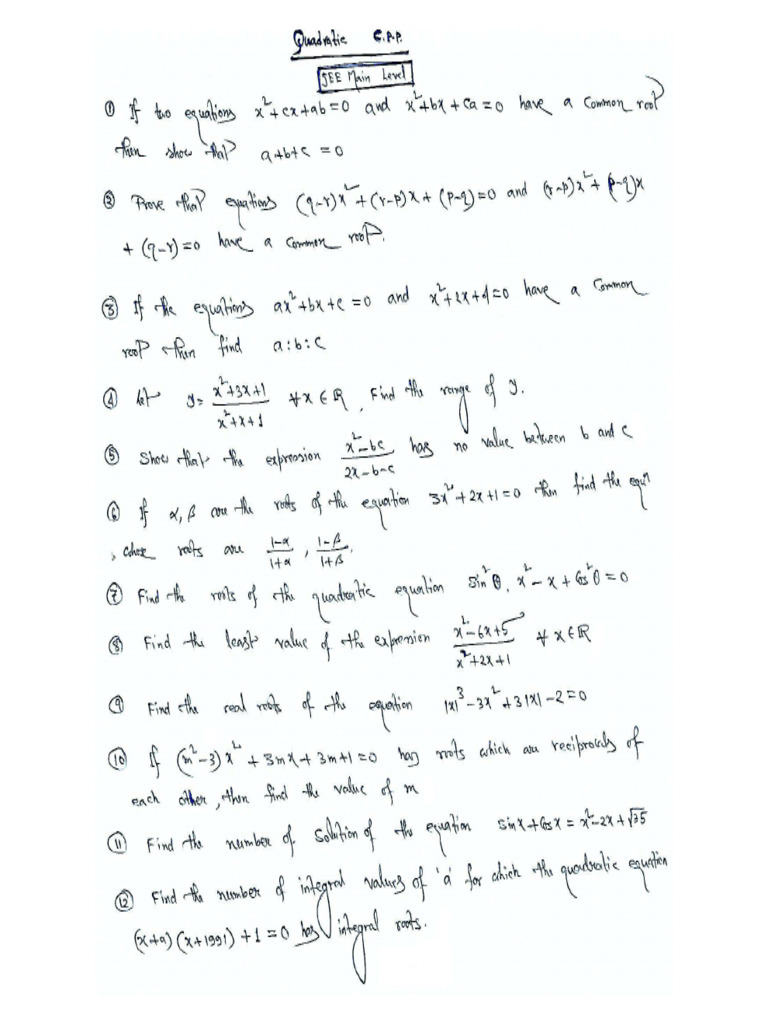 Quadratic C.P.P.
JEE Main Level
① If two equations x²+cx+ab=0 and x²+bx+ca=0 have a common root
then show that a+b+c=0
② Prove that equations (q-r)x²+(r-p)x+(p-q)=0 and (r-p)x²+(p-q)x
+(q-r)=0 have a common root.
③ If the equations ax²+bx+c=0 and x²+2x+4=0 have a common
root then find a:b:c
④ let y= (x²+3x+1)/(x²+x+1) ∀x∈R, Find the range of y.
⑤ Show that the expression (x²-bc)/(2x-b-c) has no value between b and c
⑥ If α,β are the roots of the equation 3x²+2x+1=0 then find the equⁿ
, whose roots are (1-α)/(1+α), (1-β)/(1+β).
⑦ Find the roots of the quadratic equation sin²θ.x²-x+cos²θ=0
⑧ Find the least value of the expression (x²-6x+5)/(x²+2x+1) ∀x∈R
⑨ Find the real roots of the equation |x|³-3x²+3|x|-2=0
⑩ If (m²-3)x²+3mx+3m+1=0 has roots which are reciprocals of
each other, then find the value of m
⑪ Find the number of solution of the equation sinx+cosx=x²-2x+√35
⑫ Find the number of integral values of 'a' for which the quadratic equation
(x+a)(x+1991)+1=0 has integral roots.